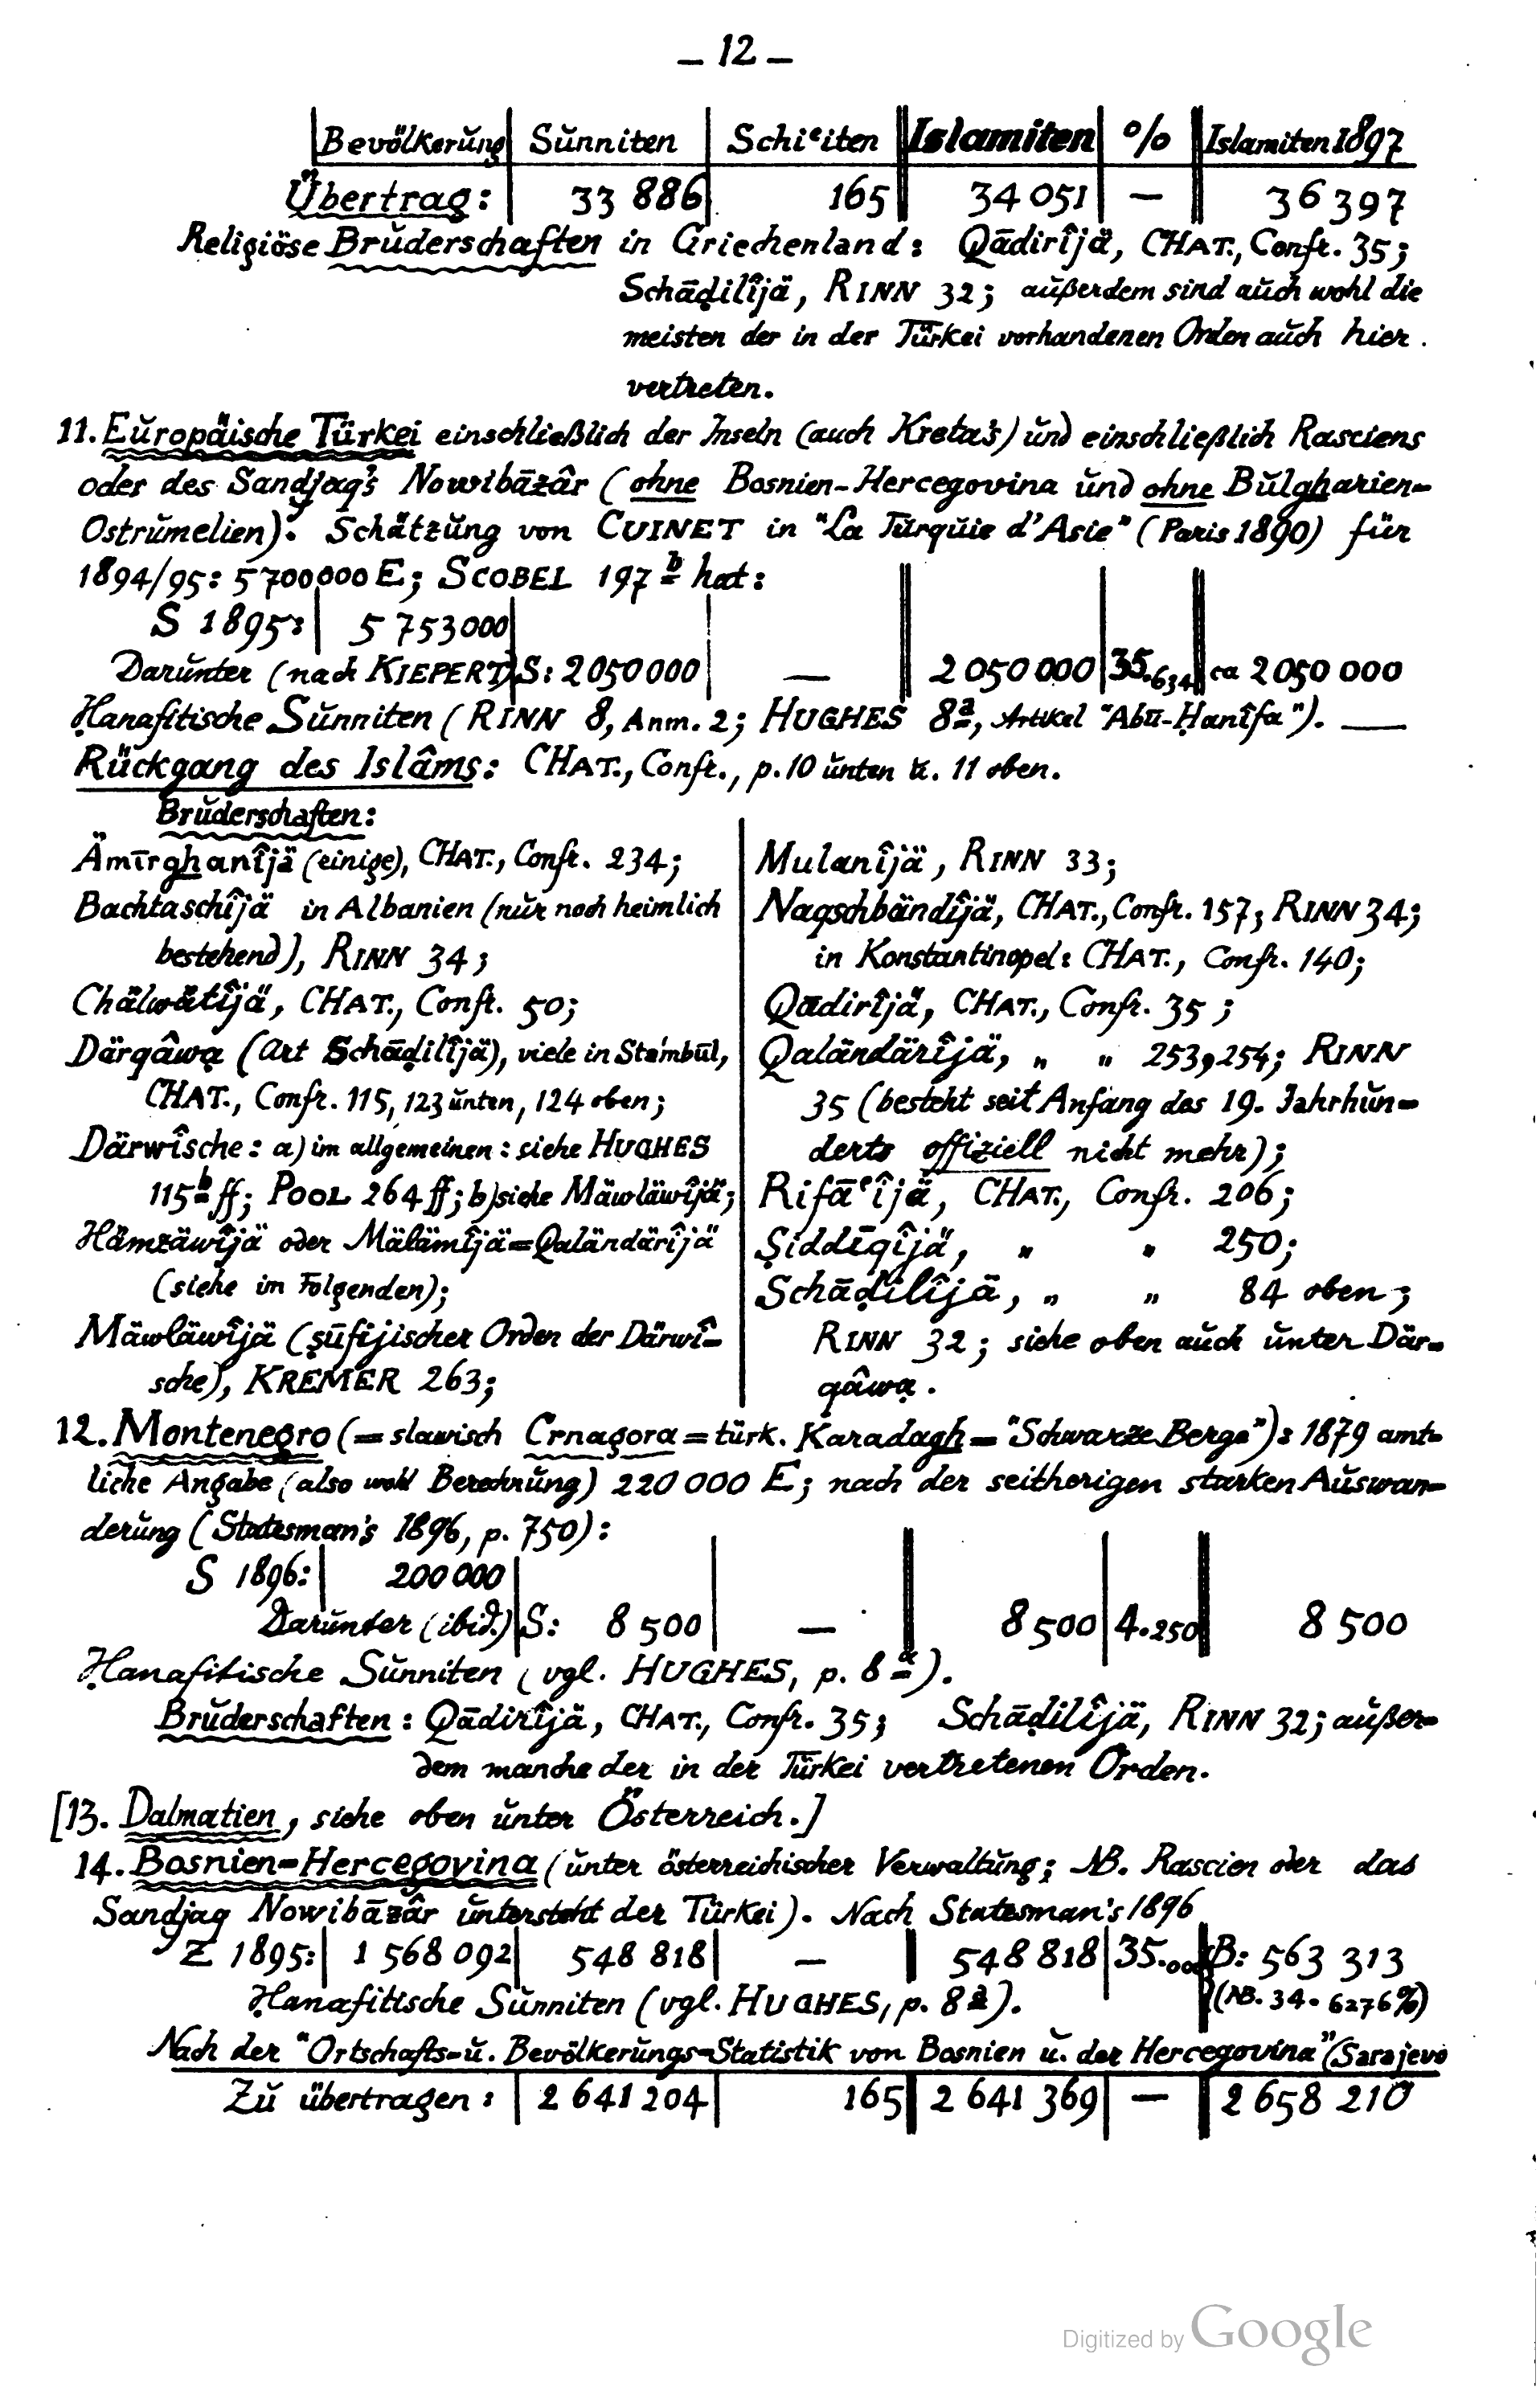 – 12 –
Bevölkerŭng | Sŭnniten | Schiᵉiten || Islamiten | % || Islamiten 1897
Übertrag: | 33 886 | 165 || 34 051 | — || 36 397
Religiöse Brŭderschaften in Griechenland: Qādirîjä, CHAT., Confr. 35;
Schāḍilîjä, RINN 32; aŭßerdem sind aŭch wohl die
meisten der in der Türkei vorhandenen Orden aŭch hier
vertreten.
11. Eŭropäische Türkei einschließlich der Inseln (auch Kreta's) ŭnd einschließlich Rasciens
oder des Sandjaq's Nowibāzâr (ohne Bosnien-Hercegovina ŭnd ohne Bŭlgharien-
Ostrŭmelien): Schätzŭng von CUINET in "La Turquie d'Asie" (Paris 1890) für
1894/95: 5 700 000 E; SCOBEL 197 b hat:
S 1895: | 5 753 000 |
Darŭnter (nach KIEPERT) | S: 2 050 000 | — || 2 050 000 | 35.634 || ca 2 050 000
Ḥanafitische Sŭnniten (RINN 8, Anm. 2; HUGHES 8a, Artikel "Abū-Ḥanîfa"). —
Rückgang des Islâms: CHAT., Confr., p. 10 ŭnten ŭ. 11 oben.
Brŭderschaften:
Ämīrghanîjä (einige), CHAT., Confr. 234;
Bachtaschîjä in Albanien (nŭr noch heimlich
bestehend), RINN 34;
Chälwätîjä, CHAT., Confr. 50;
Därqâwạ (Art Schāḍilîjä), viele in Stambūl,
CHAT., Confr. 115, 123 ŭnten, 124 oben;
Därwîsche: a) im allgemeinen: siehe HUGHES
115 b ff; POOL 264 ff; b) siehe Mäwläwîjä;
Hämzäwîjä oder Mälämîjä = Qaländärîjä
(siehe im Folgenden);
Mäwläwîjä (ṣūfijischer Orden der Därwî-
sche), KREMER 263;
Mulanîjä, RINN 33;
Naqschbändîjä, CHAT., Confr. 157; RINN 34;
in Konstantinopel: CHAT., Confr. 140;
Qādirîjä, CHAT., Confr. 35;
Qaländärîjä, „ „ 253, 254; RINN
35 (besteht seit Anfang des 19. Jahrhŭn-
derts offiziell nicht mehr);
Rifāᵉîjä, CHAT., Confr. 206;
Ṣiddīqîjä, „ „ 250;
Schāḍilîjä, „ „ 84 oben;
RINN 32; siehe oben auch ŭnter Där-
qâwạ.
12. Montenegro (= slawisch Crnagora = türk. Karadagh = "Schwarze Berge"): 1879 amt-
liche Angabe (also wohl Berechnŭng) 220 000 E; nach der seitherigen starken Aŭswan-
derŭng (Statesman's 1896, p. 750):
S 1896: | 200 000 |
Darŭnter (ibid.) | S: 8 500 | — || 8 500 | 4.250 || 8 500
Ḥanafitische Sŭnniten (vgl. HUGHES, p. 8 a).
Brŭderschaften: Qādirîjä, CHAT., Confr. 35; Schāḍilîjä, RINN 32; aŭßer-
dem manche der in der Türkei vertretenen Orden.
[13. Dalmatien, siehe oben ŭnter Österreich.]
14. Bosnien-Hercegovina (ŭnter österreichischer Verwaltŭng; NB. Rascien oder das
Sandjaq Nowibāzâr ŭntersteht der Türkei). Nach Statesman's 1896
Z 1895: | 1 568 092 | 548 818 | — || 548 818 | 35.000 || B: 563 313
Ḥanafitische Sŭnniten (vgl. HUGHES, p. 8 a). || (NB. 34.6276%)
Nach der "Ortschafts- ŭ. Bevölkerŭngs-Statistik von Bosnien ŭ. der Hercegovina" (Sarajevo
Zŭ übertragen: | 2 641 204 | 165 || 2 641 369 | — || 2 658 210
Digitized by Google